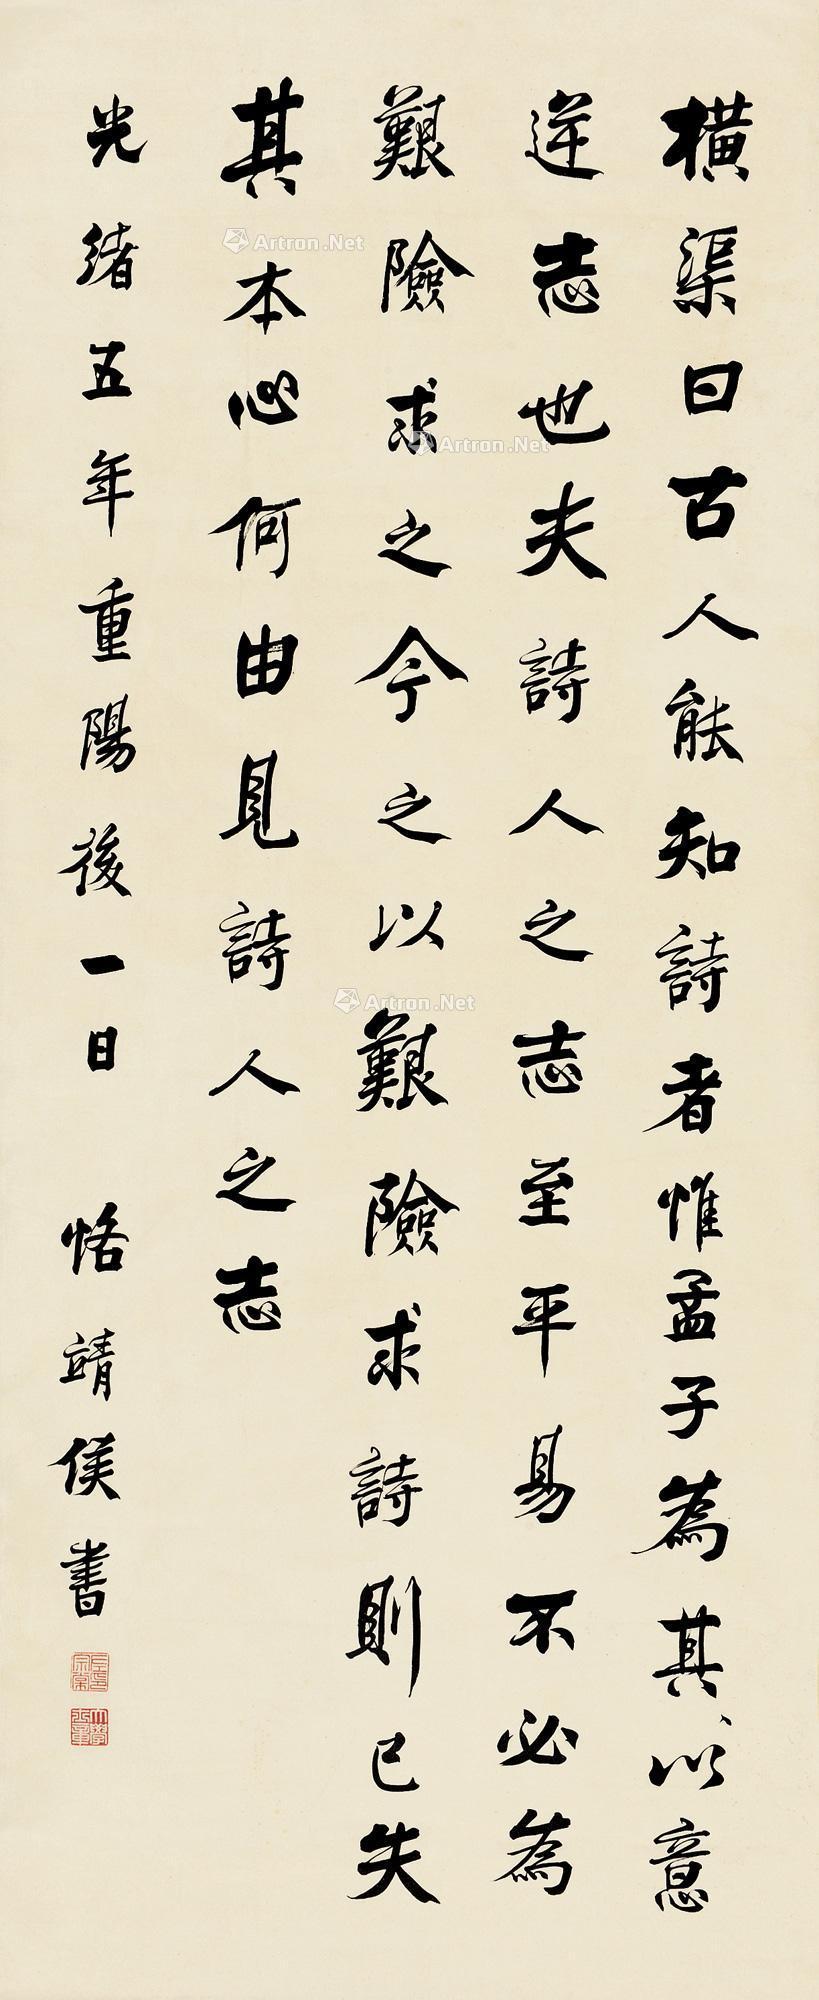 橫渠曰古人能知詩者惟孟子為其以意
逆志也夫詩人之志至平易不必為
艱險求之今之以艱險求詩則已失
其本心何由見詩人之志
光緒五年重陽後一日 恪靖侯書
Artron.Net
Artron.Net
Artron.Net